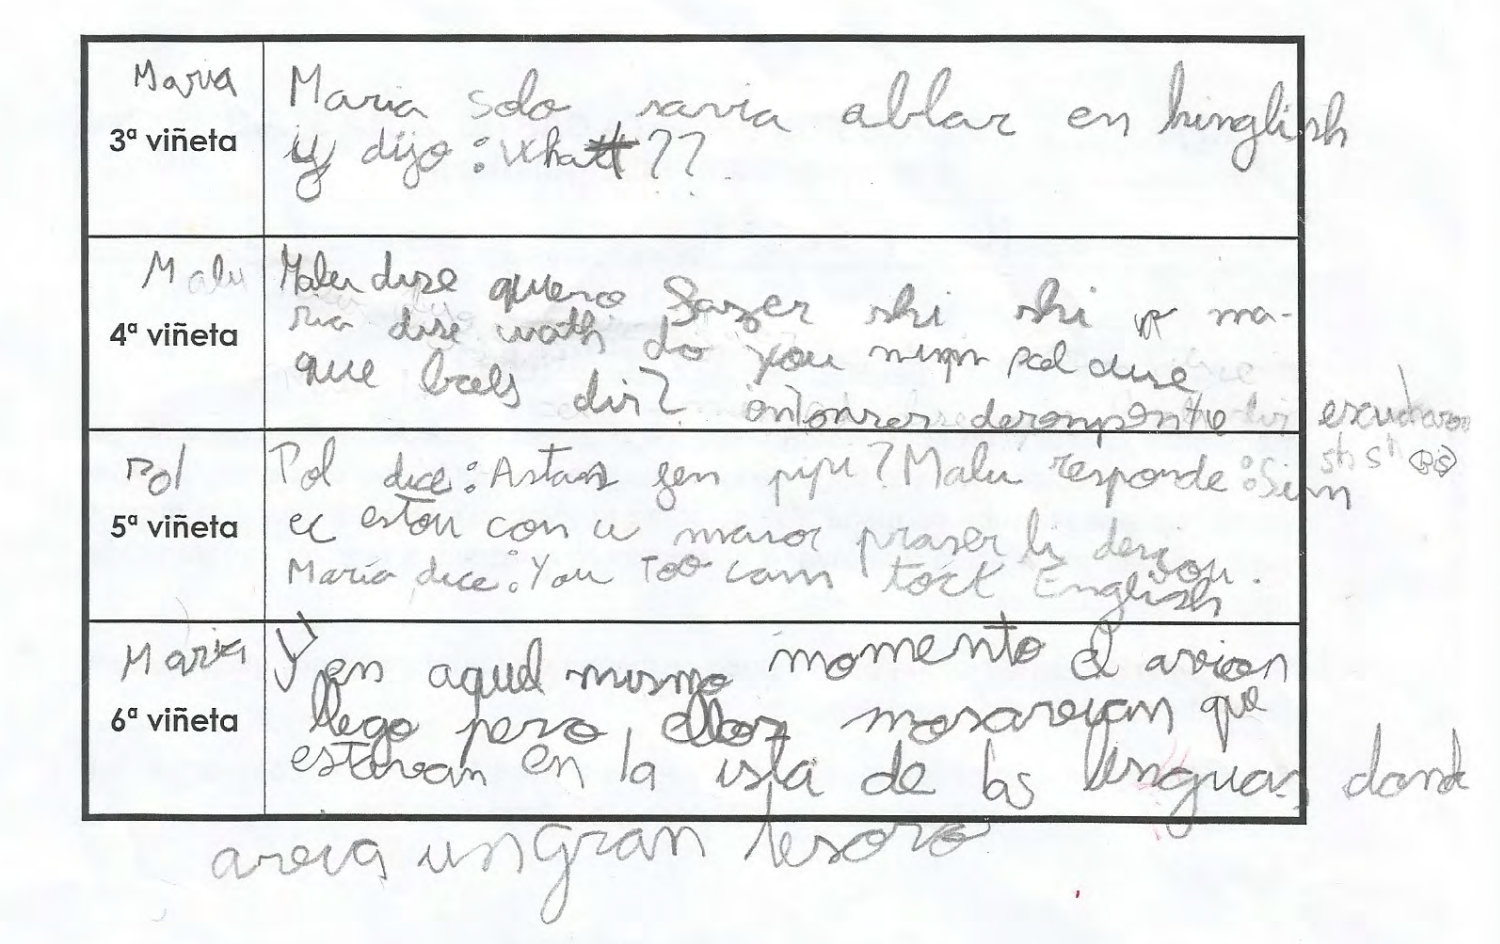 Maria
3ª viñeta
Maria solo savia ablar en hinglish
y dijo: What??
Malu
4ª viñeta
Malu dise quero fazer shi shi y ma-
ria dise wath do you pol dise
que bols dir? entonses derompente escucharon
sh sh
Pol
5ª viñeta
Pol dice: Astas fen pipi? Malu responde: Sim
estou con u maior praser
Maria dice: You Too cam tock English
Maria
6ª viñeta
Y en aquel mismo momento el avion
llego pero ellos que
estavan en la isla de las lenguas donde
avia un gran tesoro